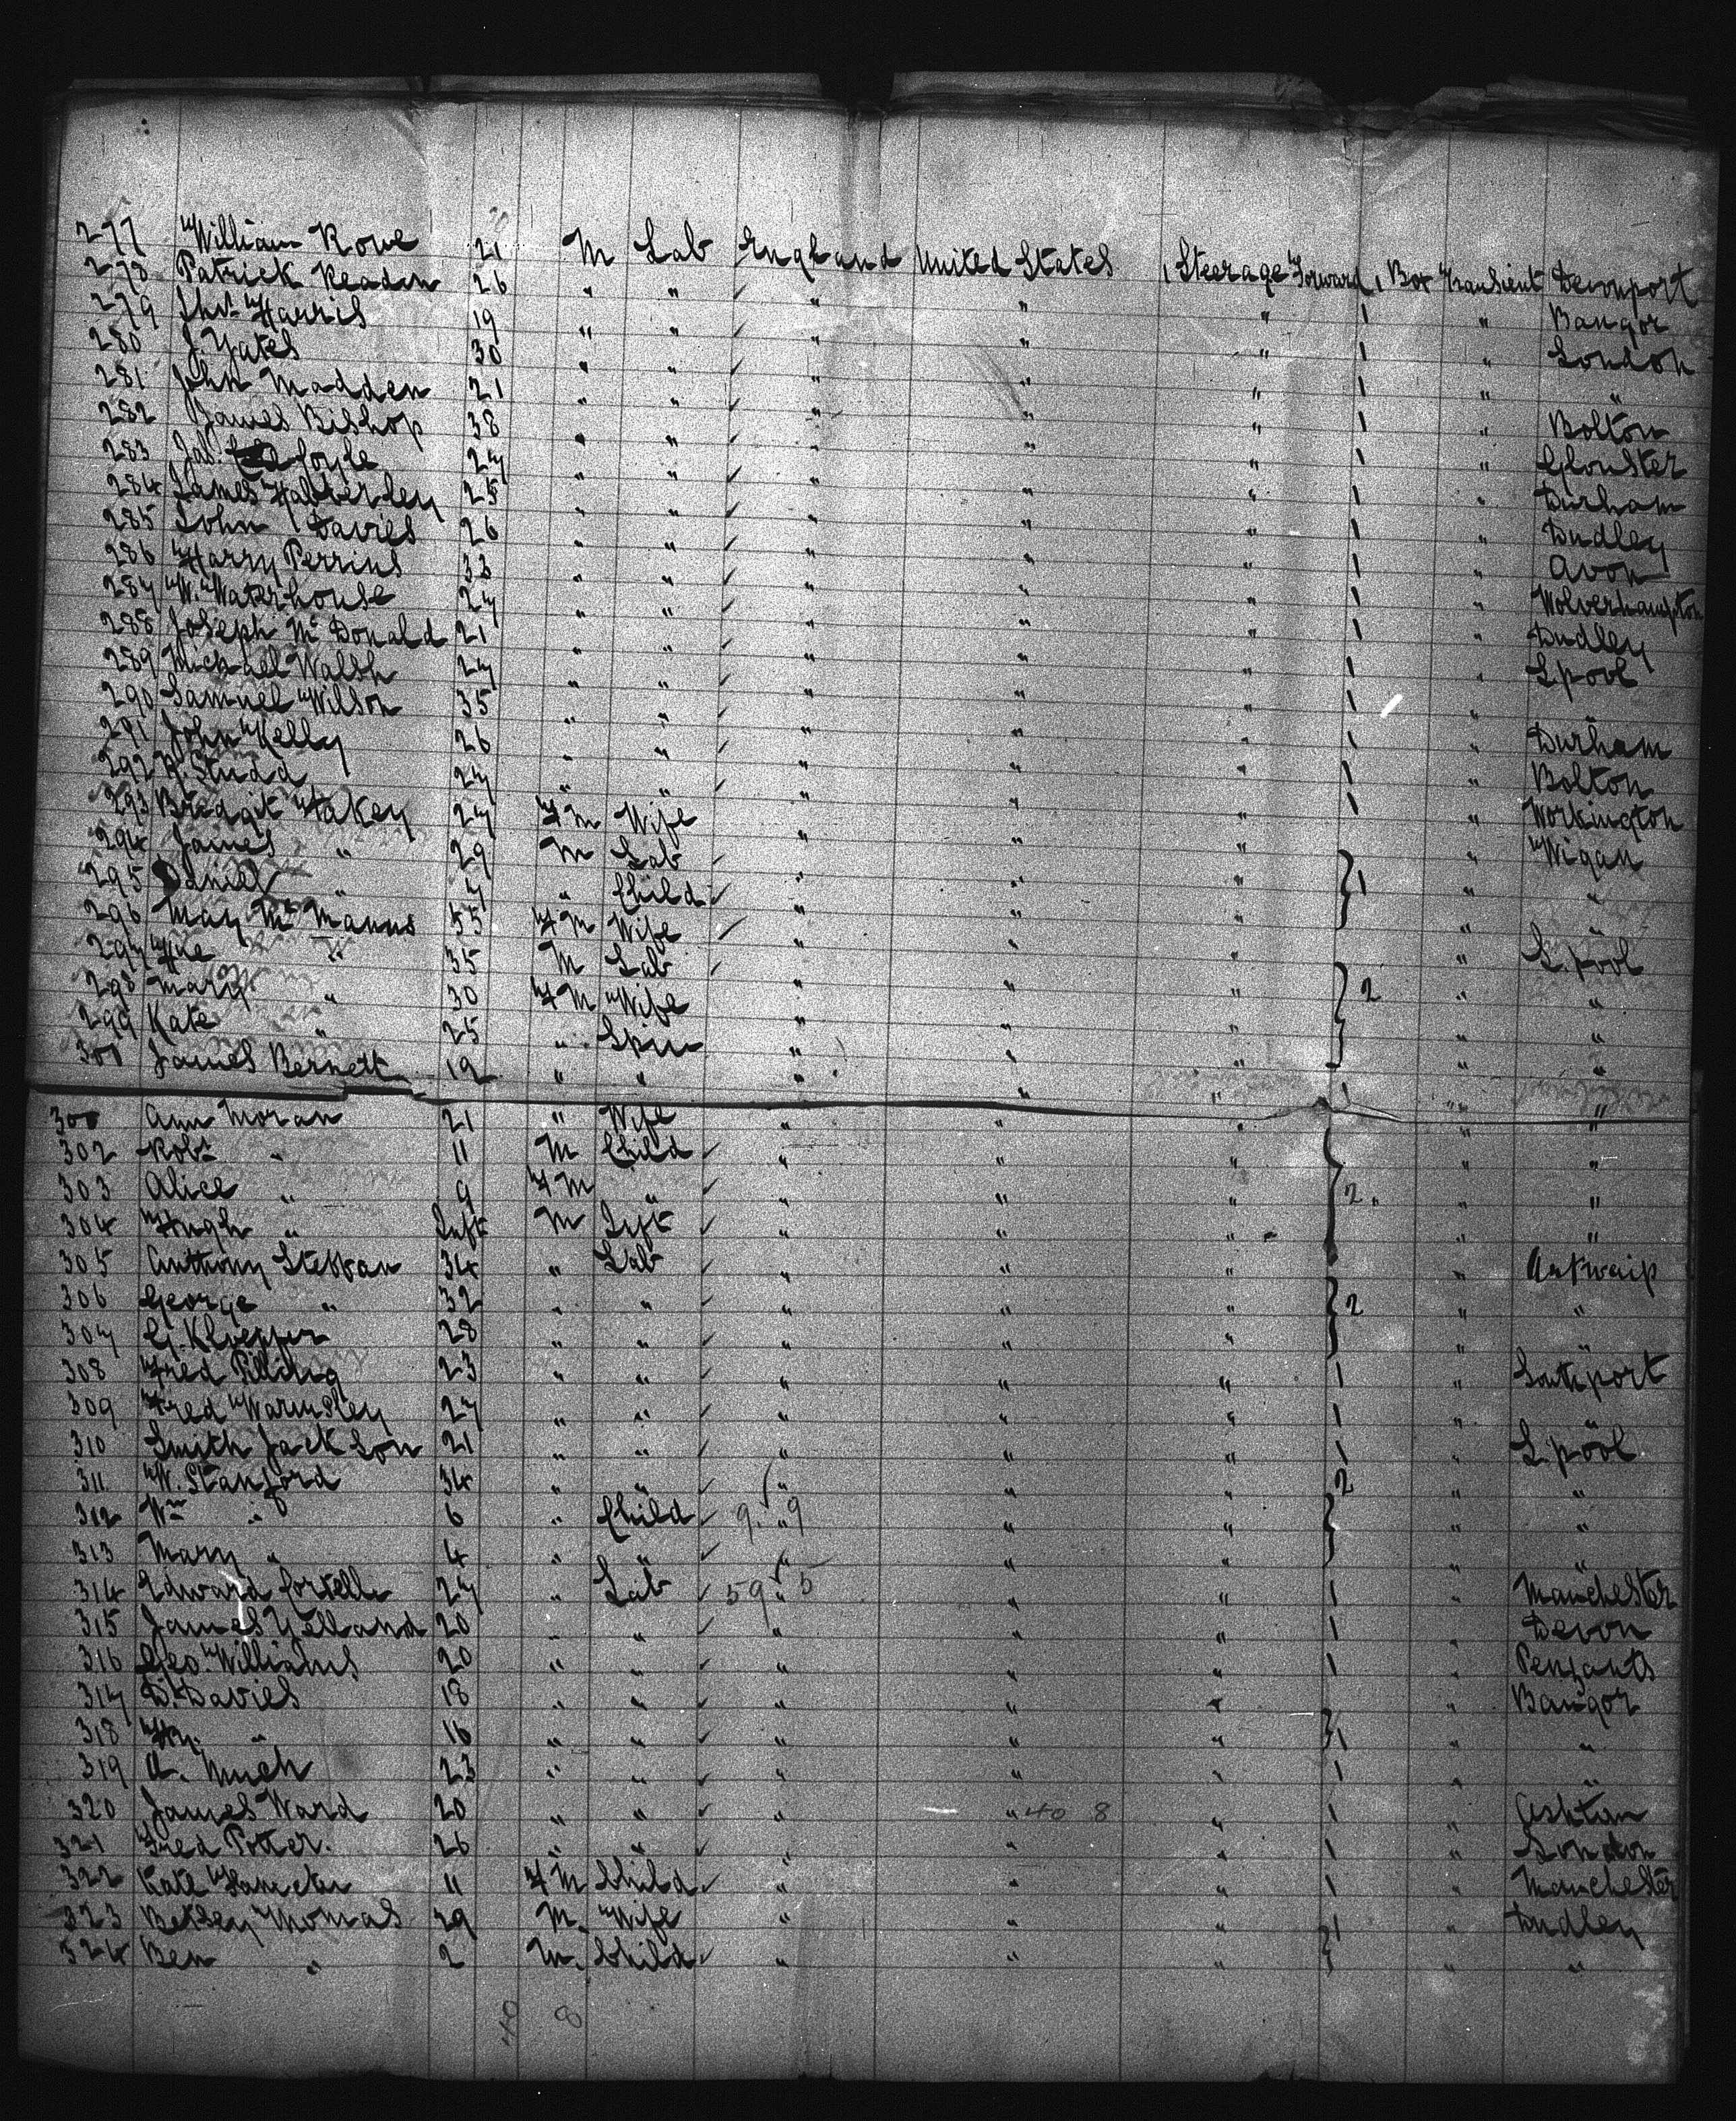 277 William Rowe 21 M Lab England United States 1 Steerage Forward 1 Box Transient Devonport
278 Patrick Readen 26 " " " " " 1 " Bangor
279 Thos. Harris 19 " " " " " 1 " London
280 J. Yates 30 " " " " " 1 " "
281 John Madden 21 " " " " " 1 " Bolton
282 James Bishop 38 " " " " " 1 " Glouster
283 Jas. Coyle 27 " " " " " 1 " Durham
284 James Habberley 25 " " " " " 1 " Dudley
285 John Davies 26 " " " " " 1 " Avon
286 Harry Perrins 33 " " " " " 1 " Wolverhampton
287 W. Waterhouse 27 " " " " " 1 " Dudley
288 Joseph McDonald 21 " " " " " 1 " L.pool
289 Michael Walsh 27 " " " " " 1 " "
290 Samuel Wilson 35 " " " " " 1 " Durham
291 John Kelly 26 " " " " " 1 " Bolton
292 R. Studd 27 " " " " " 1 " Workington
293 Bredgit Hakey 27 F M Wife " " " " Wigan
294 James " 29 M Lab " " " 1 " "
295 Daniel " 4 " Child " " " " "
296 May McManus 55 F M Wife " " " " L.pool
297 Hue " 35 M Lab " " " 2 " "
298 Mary " 30 F M Wife " " " " "
299 Kate " 25 " Spin " " " " "
James Bernett 19 " " " " " 1 " "
300 Ann Moran 21 " Wife " " " " "
302 Robt " 11 M Child " " " " "
303 Alice " 9 F M " " " " 2 " "
304 Hugh " Inft M Inft " " " " "
305 Anthony Steffan 34 " Lab " " " " Antwaip
306 George " 32 " " " " " 2 " "
307 G. Kloepper 28 " " " " " " "
308 Fred Pilling 23 " " " " " 1 " Southport
309 Fred Warmsley 27 " " " " " 1 " "
310 Smith Jackson 21 " " " " " 1 " L.pool
311 W. Stanford 34 " " " " " 2 " "
312 Wm " 6 " Child 9 " 9 " " " "
313 Mary " 4 " " " " " " "
314 Edward 27 " Lab 59 " 5 " " 1 " Manchester
315 James Yelland 20 " " " " " 1 " Devon
316 Geo. Williams 20 " " " " " 1 " Penzants
317 D. Davies 18 " " " " " " Bangor
318 " 16 " " " " " 1 " "
319 A. Much 23 " " " " " 1 " "
320 James Ward 20 " " " " 40 8 " 1 " Ashton
321 Fred Potter. 26 " " " " " 1 " London
322 Kate 11 F M Child " " " 1 " Manchester
323 Betsey Thomas 29 M. Wife " " " 1 " Dudley
324 Ben " 2 M. Child " " " " "
40 8